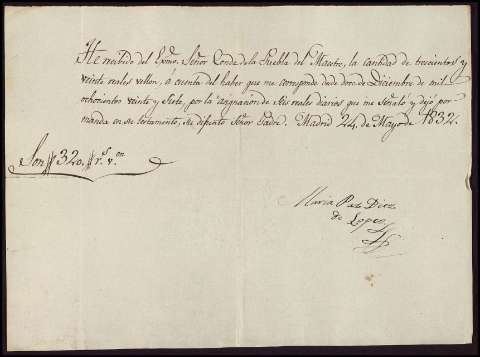 He recibido del Exmo. Señor Conde de la Puebla del Maestre, la cantidad de trecientos y
veinte reales vellon, a cuenta del haber que me corresponde desde doce de Diciembre de mil
ochocientos veinte y siete, por la asignacion de seis reales diarios que me señaló y dejó por
manda en su testamento, su difunto Señor Padre. Madrid 24 de Mayo de 1832.
Son # 320 # r.s v.on
Maria Paz Diez
de Lopez